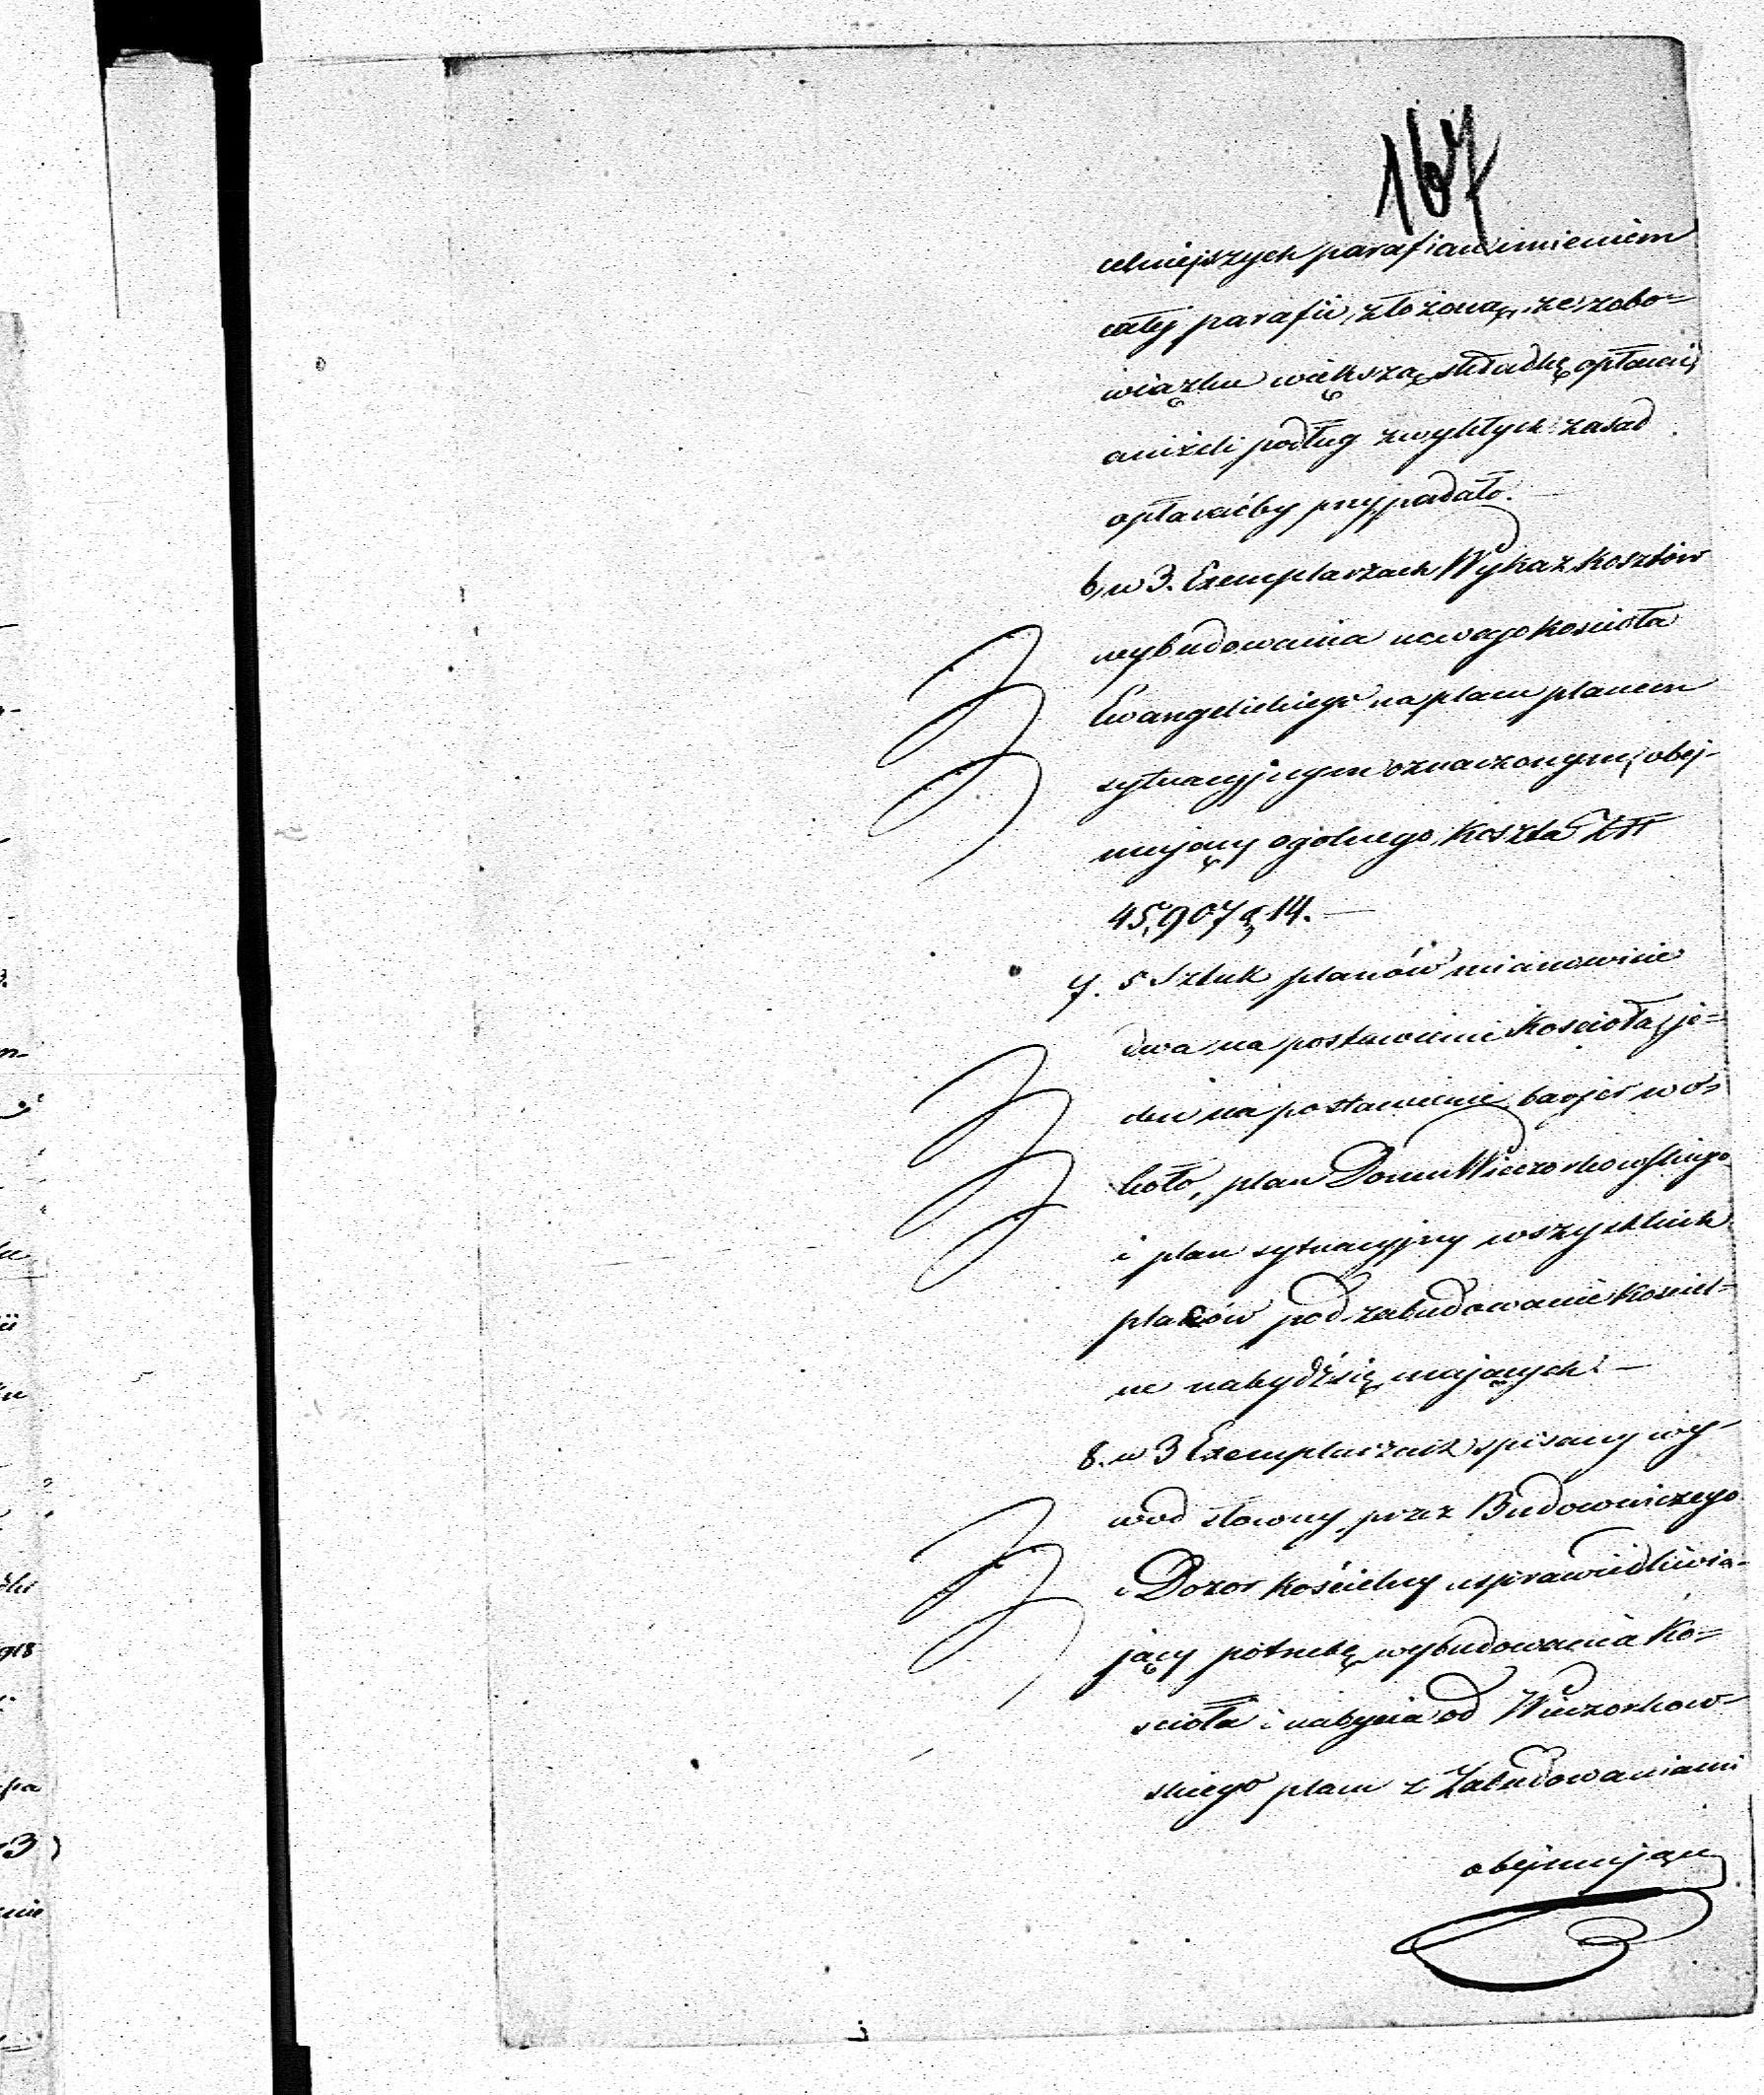 167
celniejszych parafian imieniem
całej parafii złożoną, ze zobo=
wiązku większą składkę opłacić
aniżeli podług zwykłych zasad
opłacaćby przypadało.—
6, w 3. Exemplarzach Wykaz kosztów
wybudowania nowego kościoła
Ewangelickiego na placu planem
sytuacyjnym oznaczonym, obej-
mujący ogólnego koszta Złł
45,907 g 14.—
7. 5 Sztuk planów mianowicie
dwa na postawienie kościoła, je=
den na postawienie barjer wo=
koło, plan Domu Wieczorkowskiego
i plan sytuacyjny wszystkich
placów pod zabudowanie kościel=
ne nabydź się mających.—
8. w 3 Exemplarzach spisany wy-
wód słowny przez Budowniczego
i Dozor kościelny usprawiedliwia-
jący potrzebę wybudowania Ko=
scioła i nabycia od Wieczorkow-
skiego placu z Zabudowaniami
obejmując